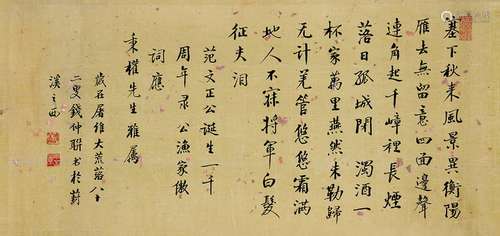 塞下秋来風景異衡陽
雁去無留意四面邊聲
連角起千嶂裡長煙
落日孤城閉 濁酒一
杯家萬里燕然未勒歸
无计羌管悠悠霜满
地人不寐将軍白髮
征夫泪
范文正公誕生一千
周年录公漁家傲
詞應
秉權先生雅屬
歲在屠維大荒落八十
二叟錢仲聯书於葑
溪之西